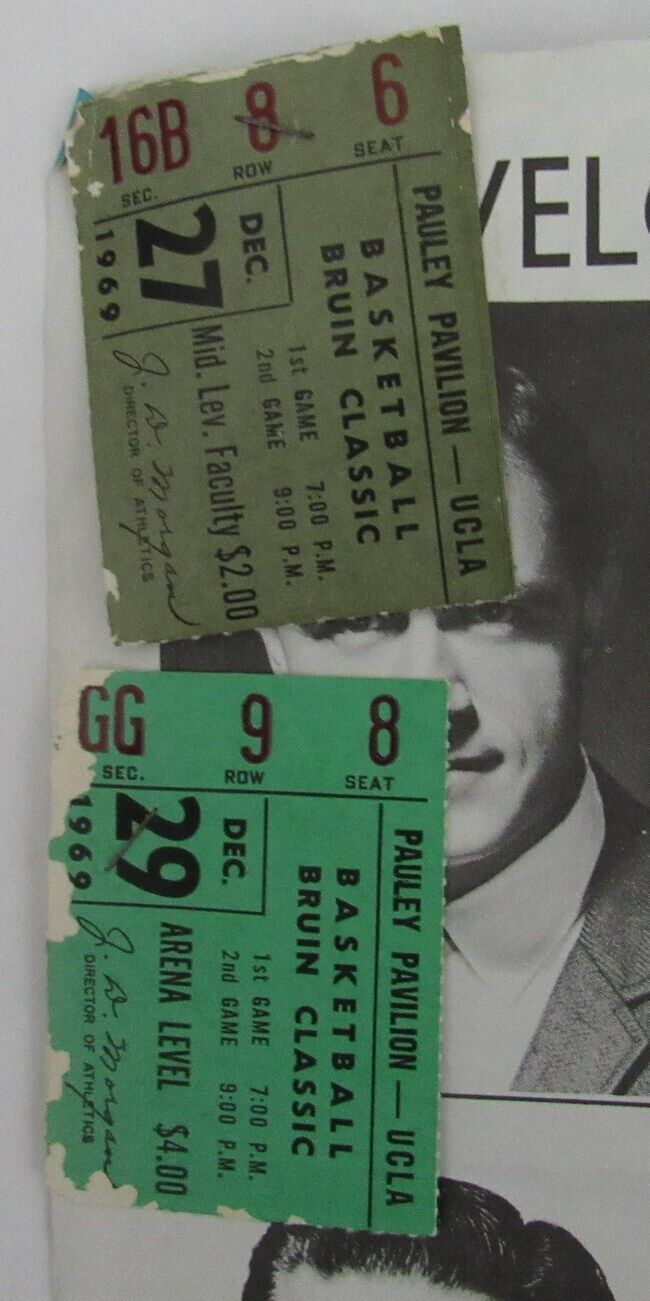 16B 8 6
SEC. ROW SEAT
PAULEY PAVILION — UCLA
BASKETBALL
BRUIN CLASSIC
1st GAME 7:00 P.M.
2nd GAME 9:00 P.M.
DEC.
27
1969
Mid. Lev. Faculty $2.00
J. D. Morgan
DIRECTOR OF ATHLETICS
GG 9 8
SEC. ROW SEAT
PAULEY PAVILION — UCLA
BASKETBALL
BRUIN CLASSIC
1st GAME 7:00 P.M.
2nd GAME 9:00 P.M.
DEC.
29
1969
ARENA LEVEL $4.00
J. D. Morgan
DIRECTOR OF ATHLETICS